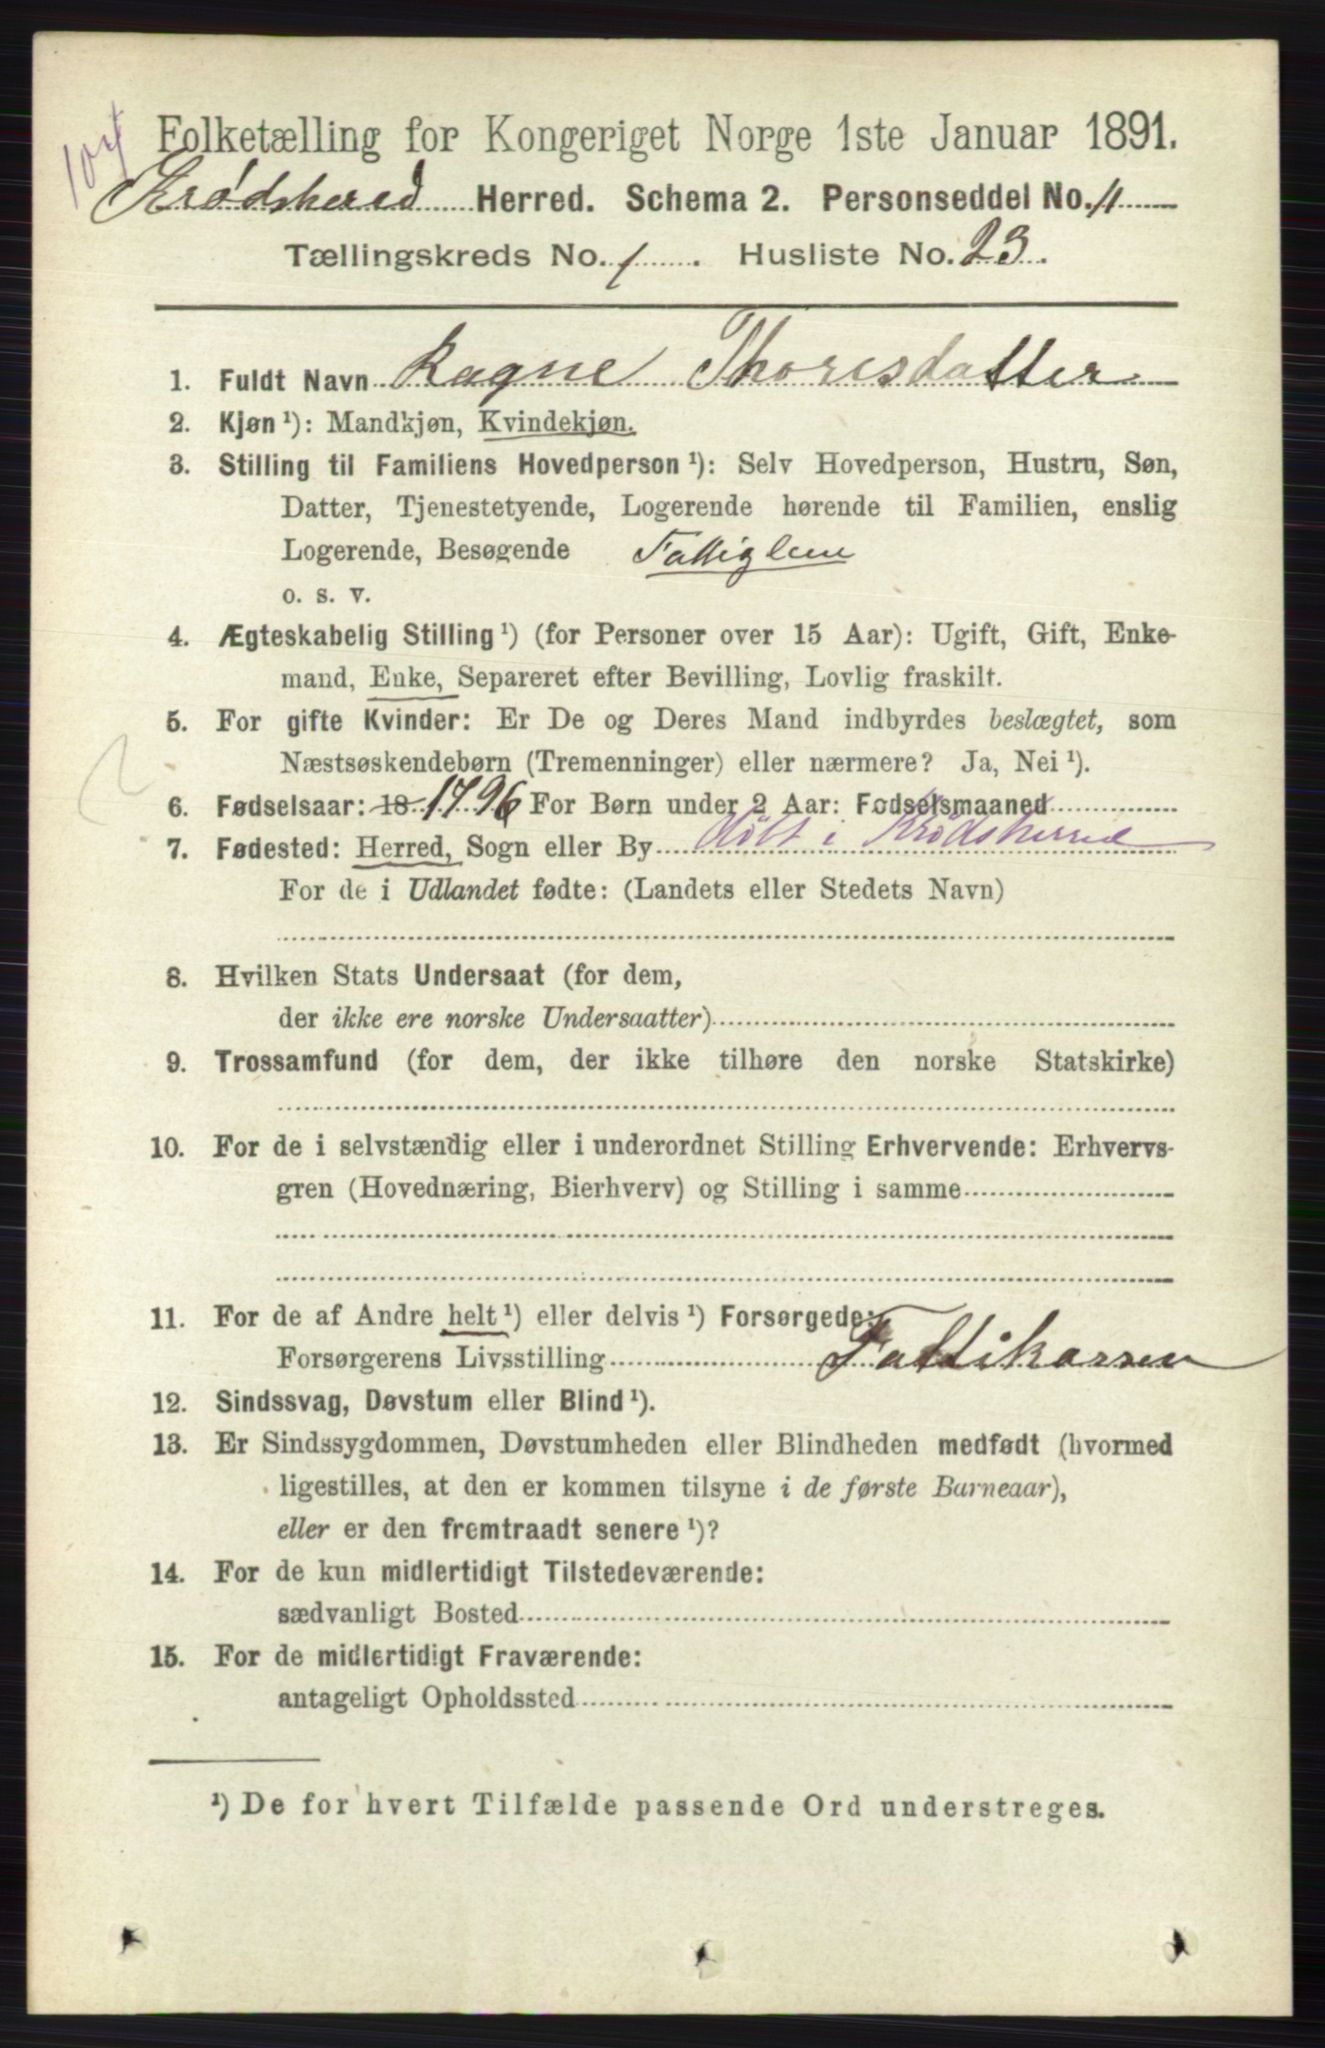 Folketælling for Kongeriget Norge 1ste Januar 1891.
Krødshered Herred. Schema 2. Personseddel No. 11
Tællingskreds No. 1. Husliste No. 23.
1. Fuldt Navn Ragne Thoresdatter
2. Kjøn ¹): Mandkjøn, Kvindekjøn.
3. Stilling til Familiens Hovedperson ¹): Selv Hovedperson, Hustru, Søn,
Datter, Tjenestetyende, Logerende hørende til Familien, enslig
Logerende, Besøgende Fattiglem
o. s. v.
4. Ægteskabelig Stilling ¹) (for Personer over 15 Aar): Ugift, Gift, Enke-
mand, Enke, Separeret efter Bevilling, Lovlig fraskilt.
5. For gifte Kvinder: Er De og Deres Mand indbyrdes beslægtet, som
Næstsøskendebørn (Tremenninger) eller nærmere? Ja, Nei ¹).
6. Fødselsaar: 18 1796 For Børn under 2 Aar: Fødselsmaaned
7. Fødested: Herred, Sogn eller By født i Krødsherred
For de i Udlandet fødte: (Landets eller Stedets Navn)
8. Hvilken Stats Undersaat (for dem,
der ikke ere norske Undersaatter)
9. Trossamfund (for dem, der ikke tilhøre den norske Statskirke)
10. For de i selvstændig eller i underordnet Stilling Erhvervende: Erhvervs-
gren (Hovednæring, Bierhverv) og Stilling i samme
11. For de af Andre helt ¹) eller delvis ¹) Forsørgede:
Forsørgerens Livsstilling Fattikassen
12. Sindssvag, Døvstum eller Blind ¹).
13. Er Sindssygdommen, Døvstumheden eller Blindheden medfødt (hvormed
ligestilles, at den er kommen tilsyne i de første Barneaar),
eller er den fremtraadt senere ¹)?
14. For de kun midlertidigt Tilstedeværende:
sædvanligt Bosted
15. For de midlertidigt Fraværende:
antageligt Opholdssted
¹) De for hvert Tilfælde passende Ord understreges.